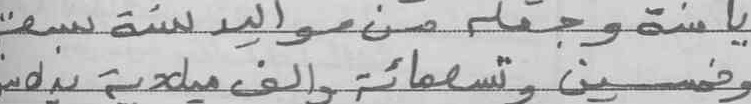 وجعله من مواليد سنة سبعة
وخمسين وتسعمائة والف ميلادية بدلا من